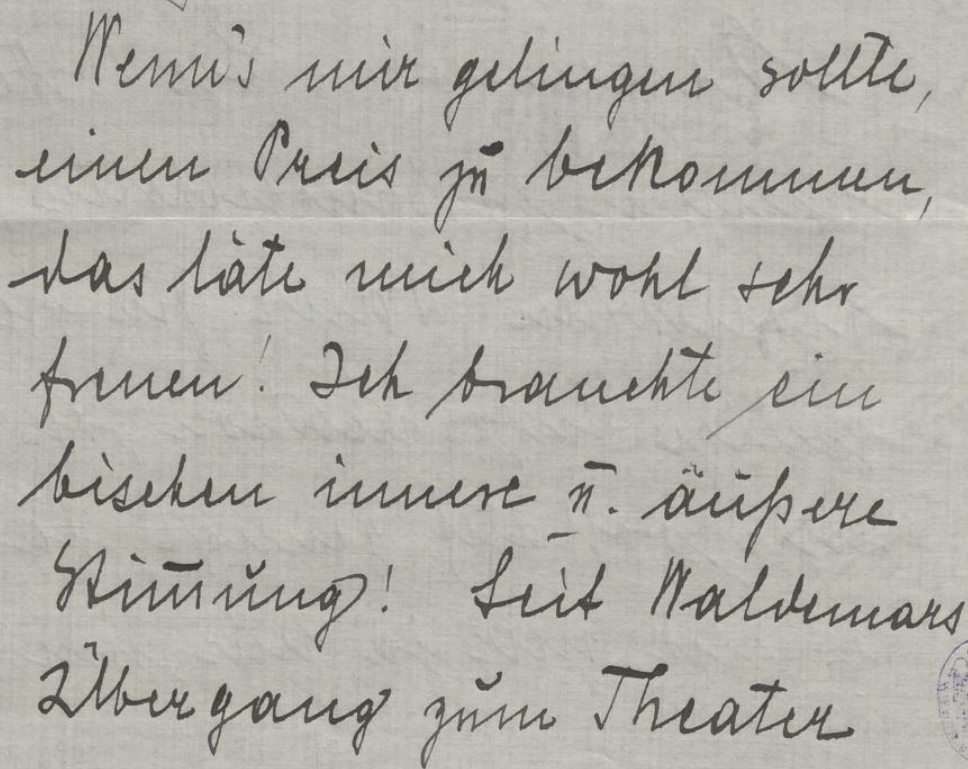 Wenn's mir gelingen sollte,
einen Preis zu bekommen,
das täte mich wohl sehr
freuen! Ich brauchte ein
bischen innere u. äußere
Stim̅ung! Seit Waldemars
Übergang zum Theater